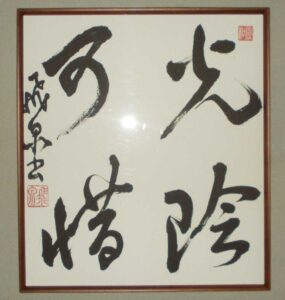 光陰
可惜